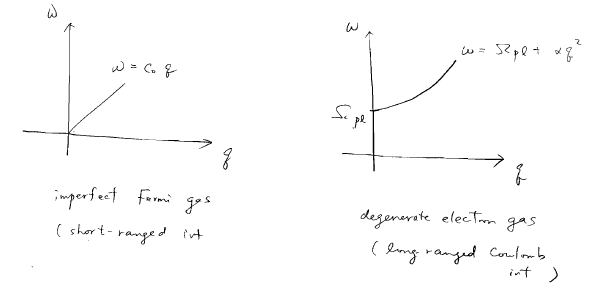 ω
ω = c₀ q
q
imperfect Fermi gas
(short-ranged int
ω
ω = Ωpl + αq²
Ωpl
q
degenerate electron gas
(long ranged Coulomb
int )